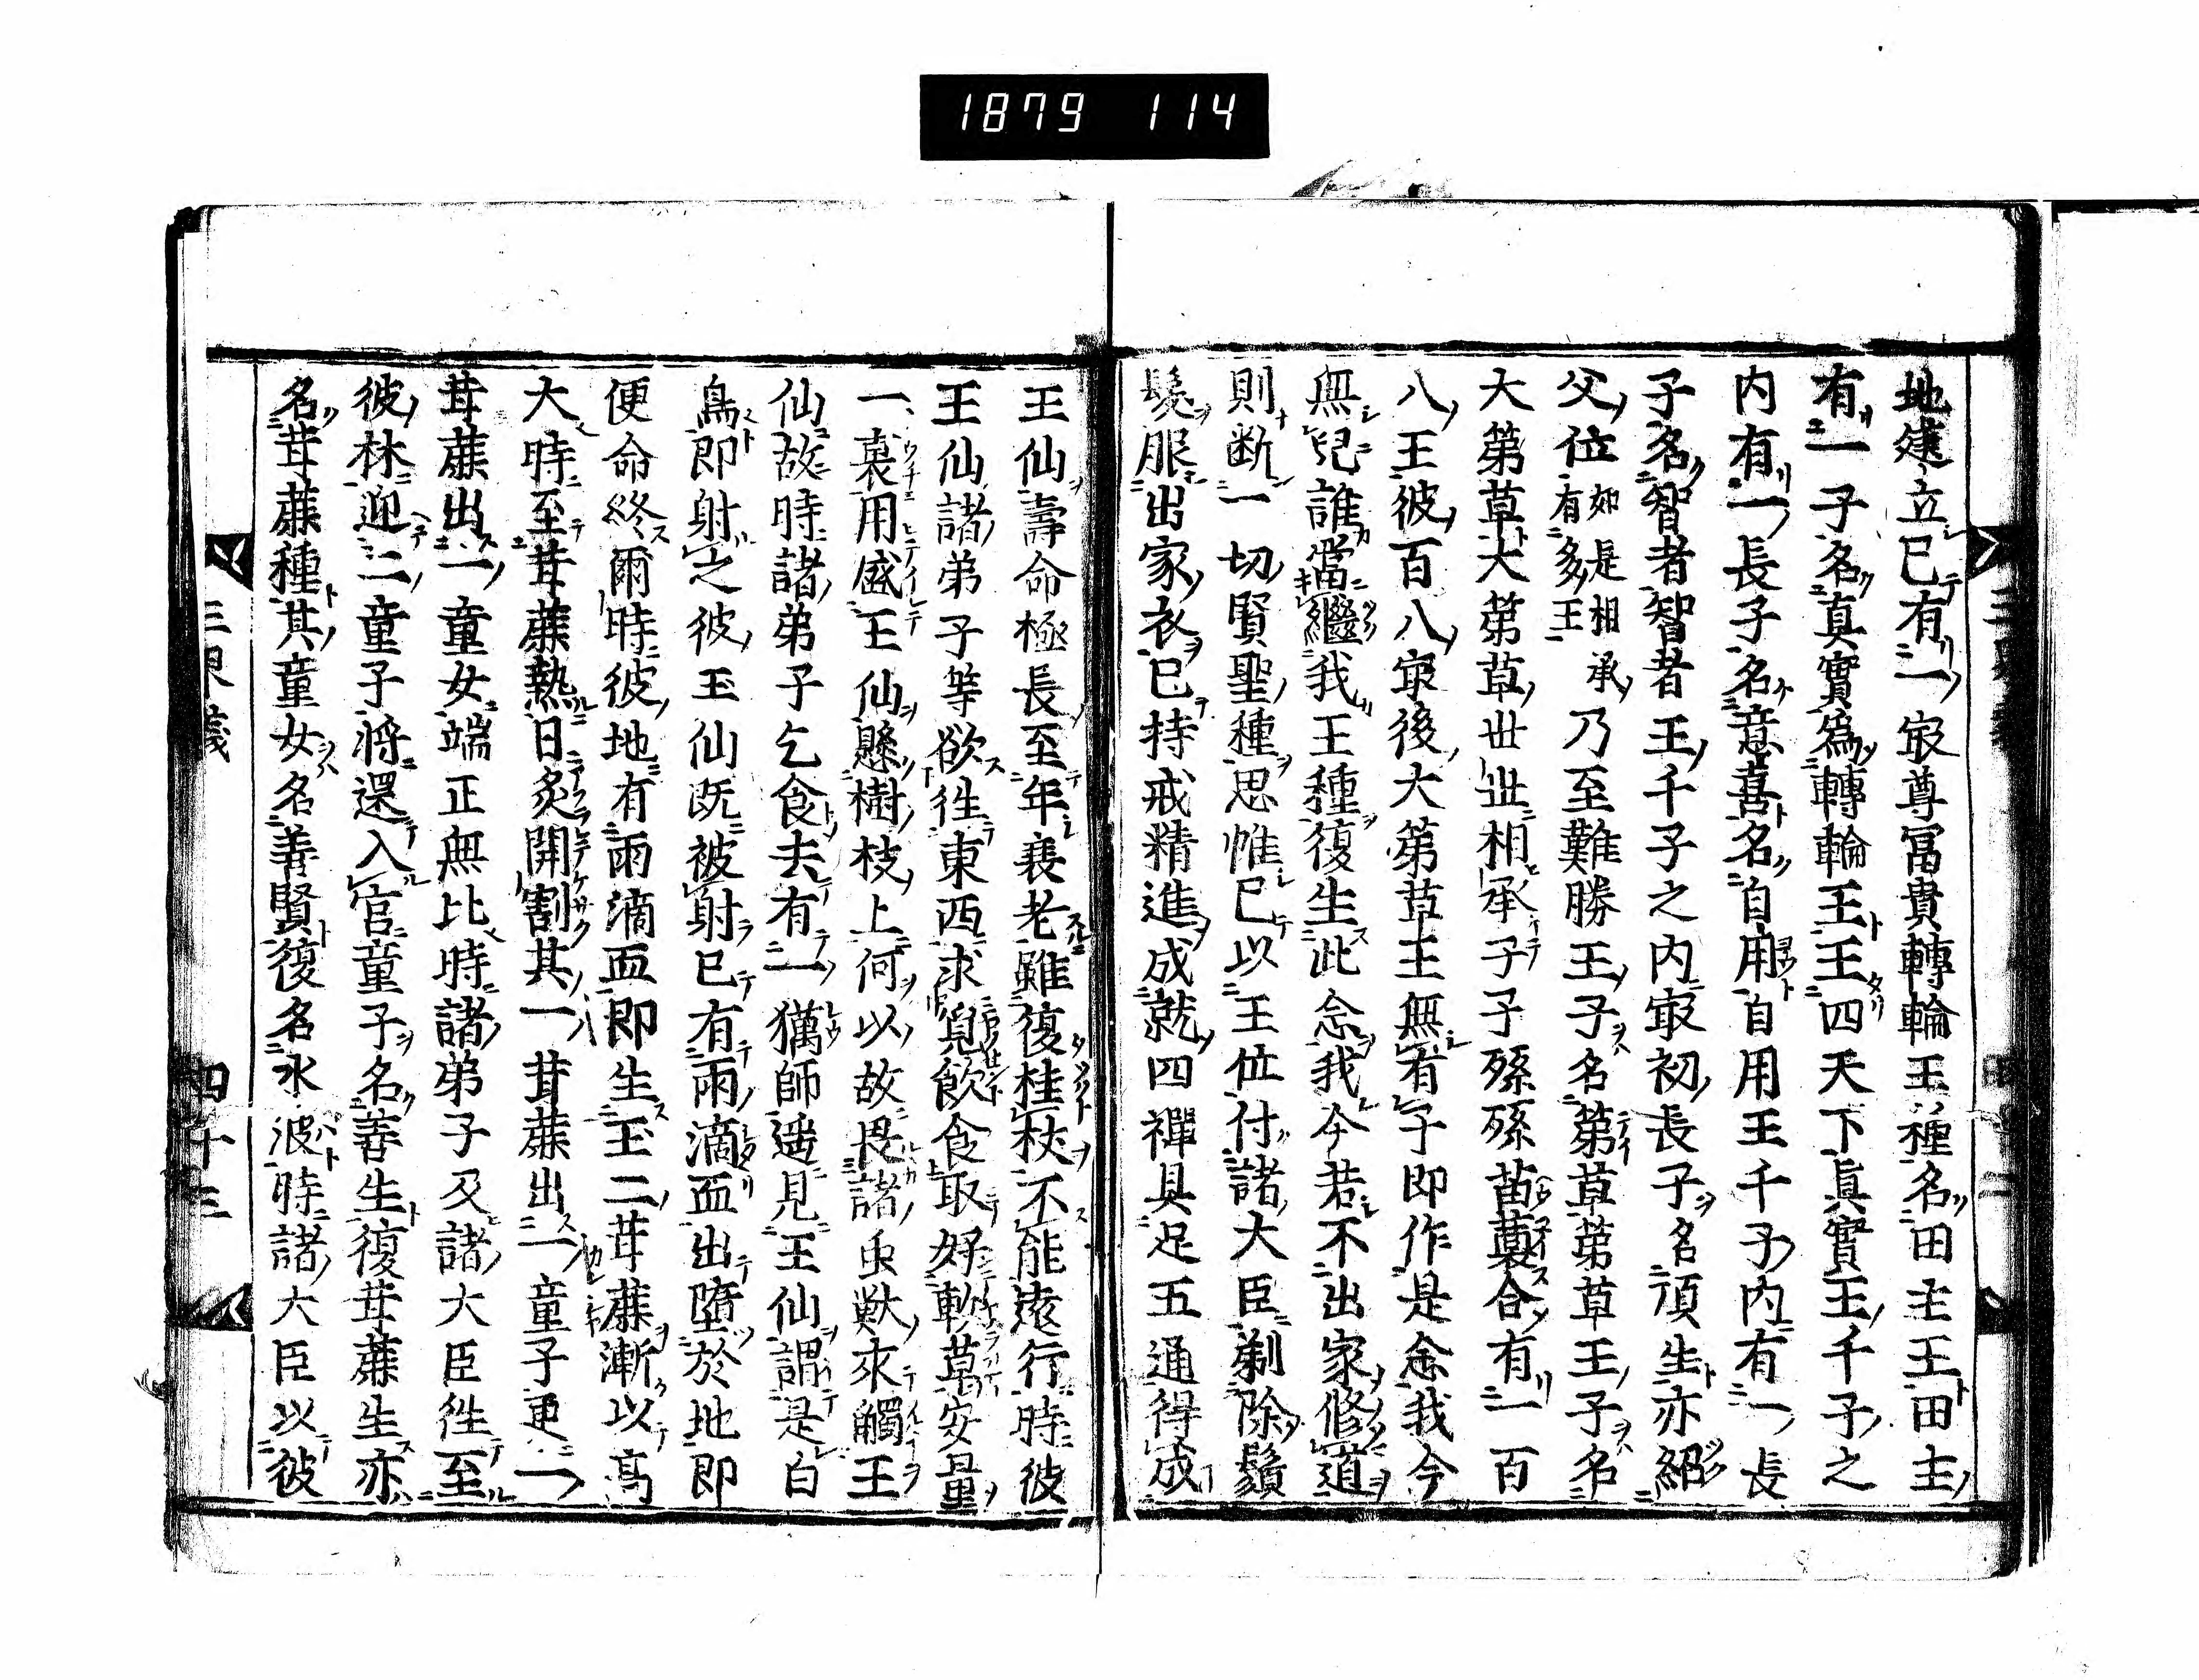 1879 114
地建立已有一㝡尊冨貴轉輪王種名田主王田主
有一子名真實為轉輪王王四天下真實王千子之
内有一長子名意喜名自用自用王千子内有一長
子名智者智者王千子之内㝡初長子名頂生亦紹
父位如是相承有多王乃至難勝王子名茅草茅草王子名
大茅草大茅草世世相承子子孫孫苗裔合有一百
八王彼百八㝡後大茅草王無有子即作是念我今
無兒誰當繼我王種復生此念我今若不出家修道
則断一切賢聖種思惟已以王位付諸大臣剃除鬚
髮服出家衣已持戒精進成就四禪具足五通得成
王仙壽命極長至年衰老雖復柱杖不能遠行時彼
王仙諸弟子等欲徃東西求覓飲食取好軟草安置
一裏用盛王仙懸樹枝上何以故畏諸虫獣来觸王
仙故時諸弟子乞食去有一獵師遥見王仙謂是白
鳥即射之彼王仙既被射已有兩滴血出墮於地即
便命終爾時彼地有兩滴血即生二甘蔗漸以高
大時至甘蔗熱日炙開割其一甘蔗出一童子更一
甘蔗出一童女端正無比時諸弟子及諸大臣徃至
彼林迎二童子将還入官童子名善生復甘蔗生亦
名甘蔗種其童女名善賢復名水波時諸大臣以彼
三界義
四十三